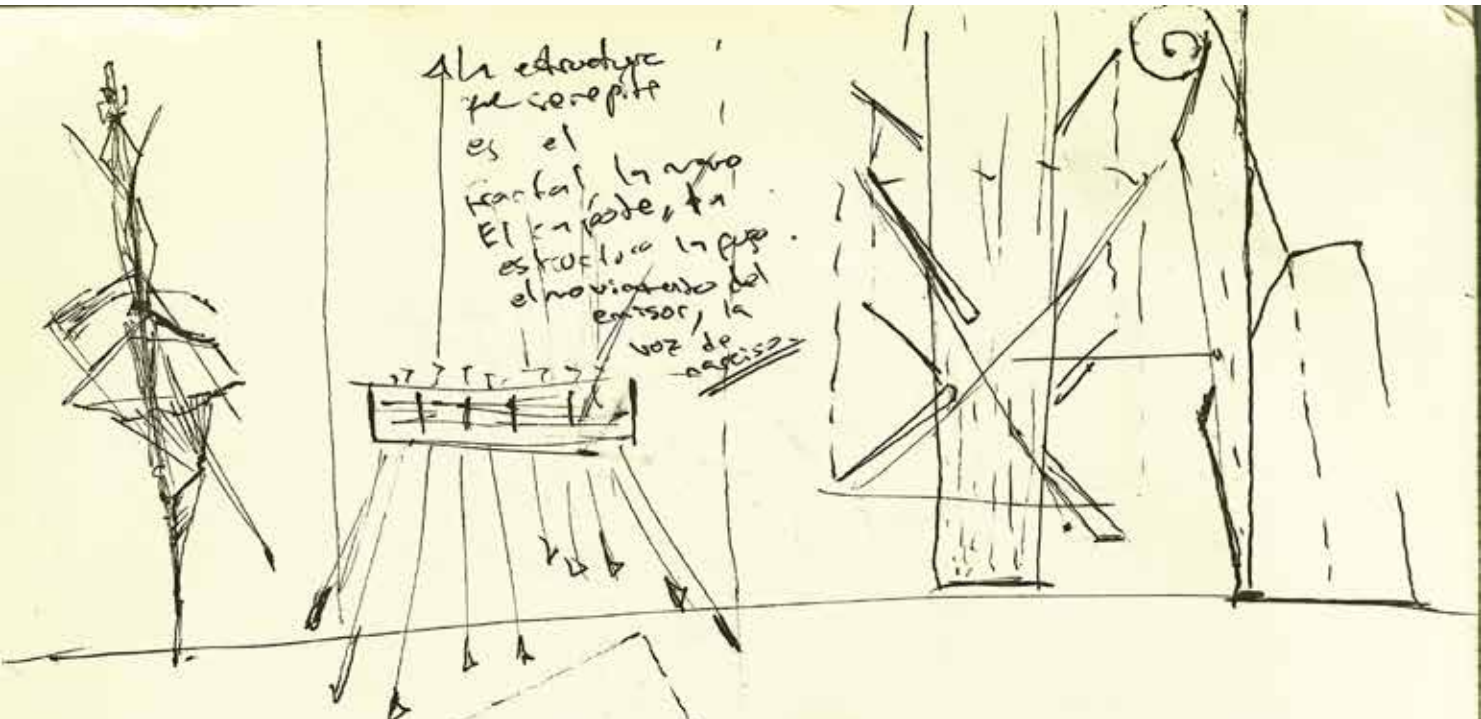 la estructura
que se repite
es el
fractal, la nave
El
estructura la fuga
el movimiento del
emisor, la
voz de
narciso